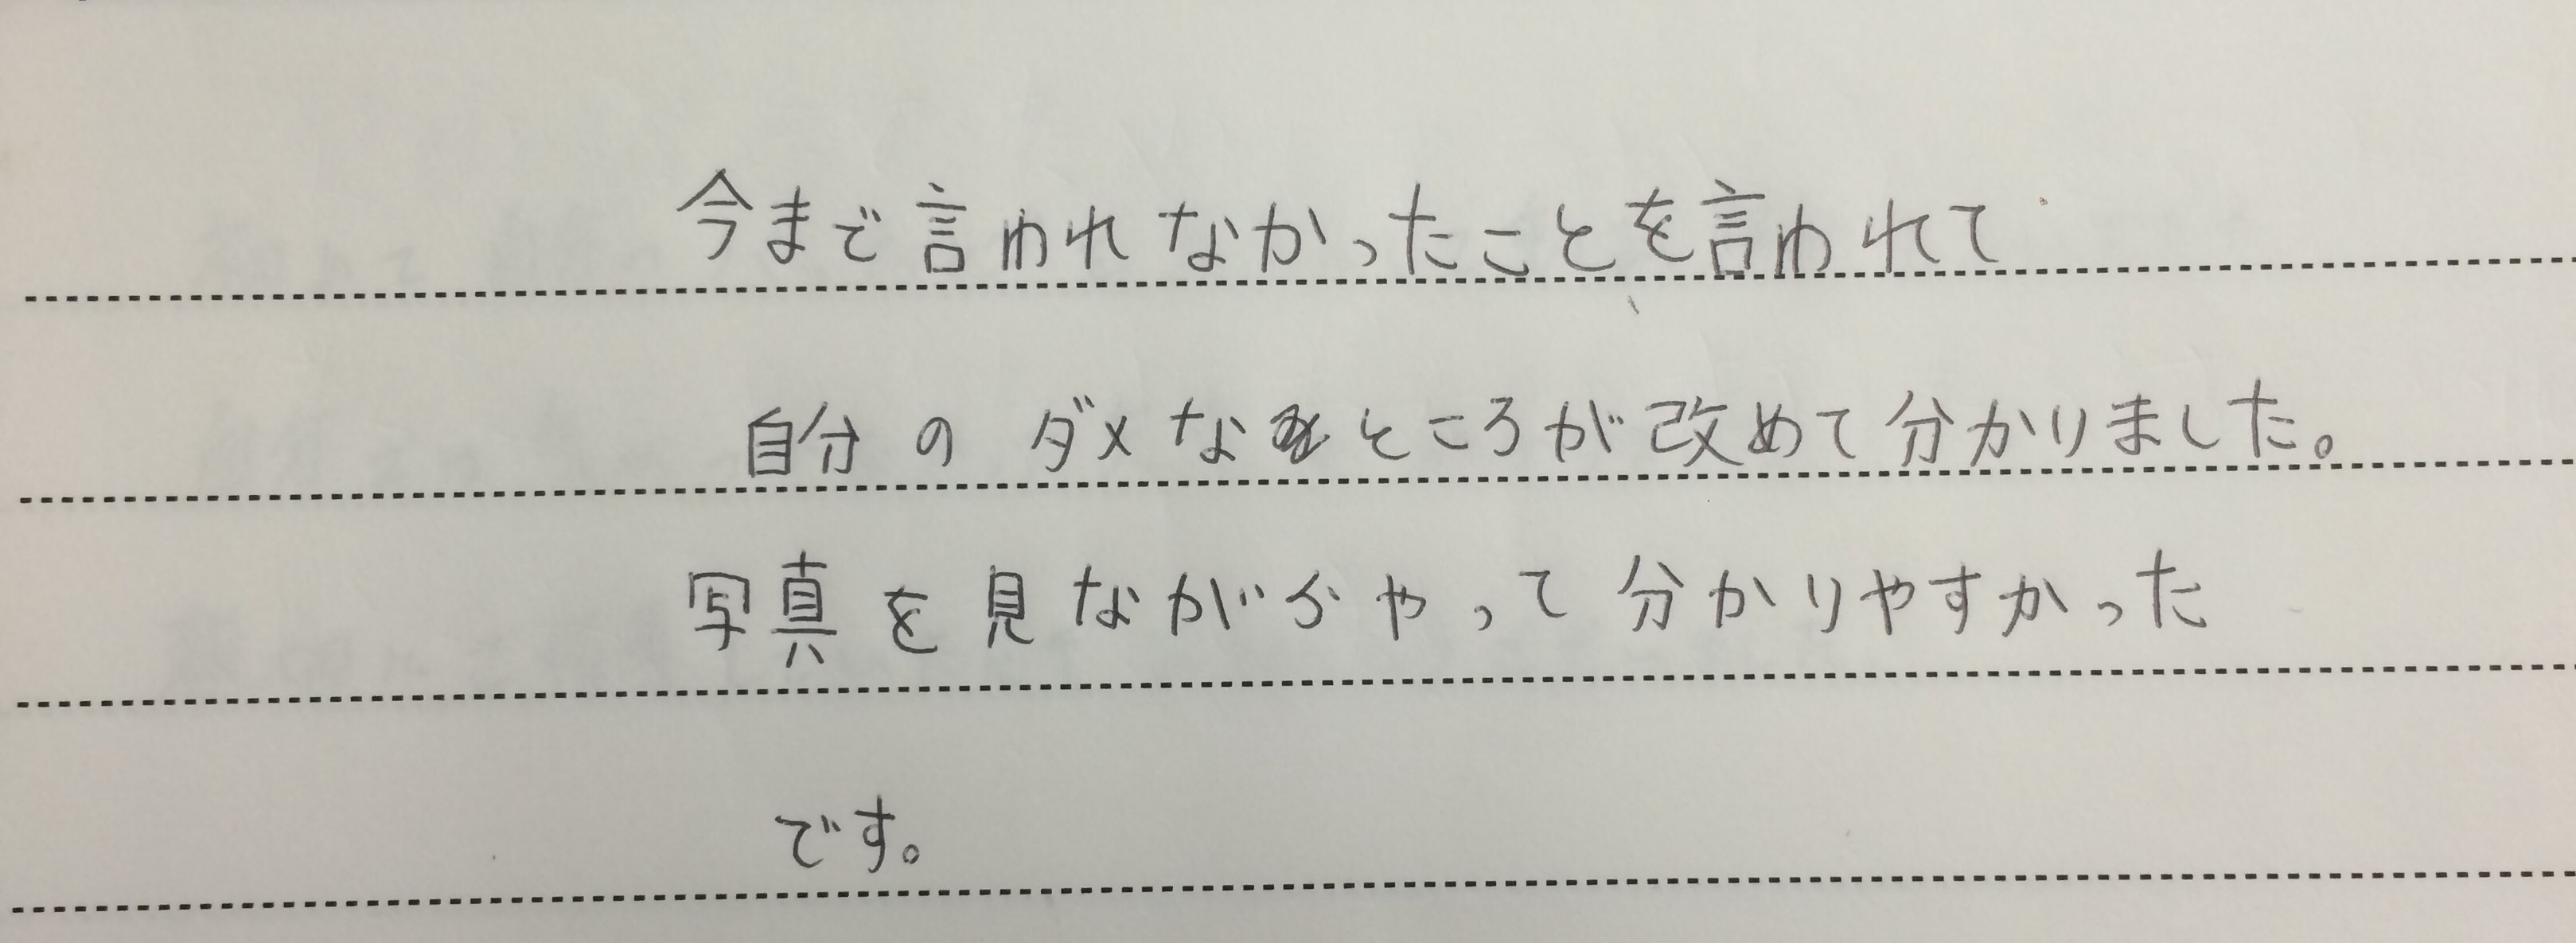 今まで言われなかったことを言われて
自分のダメなところが改めて分かりました。
写真を見ながらやって分かりやすかった
です。